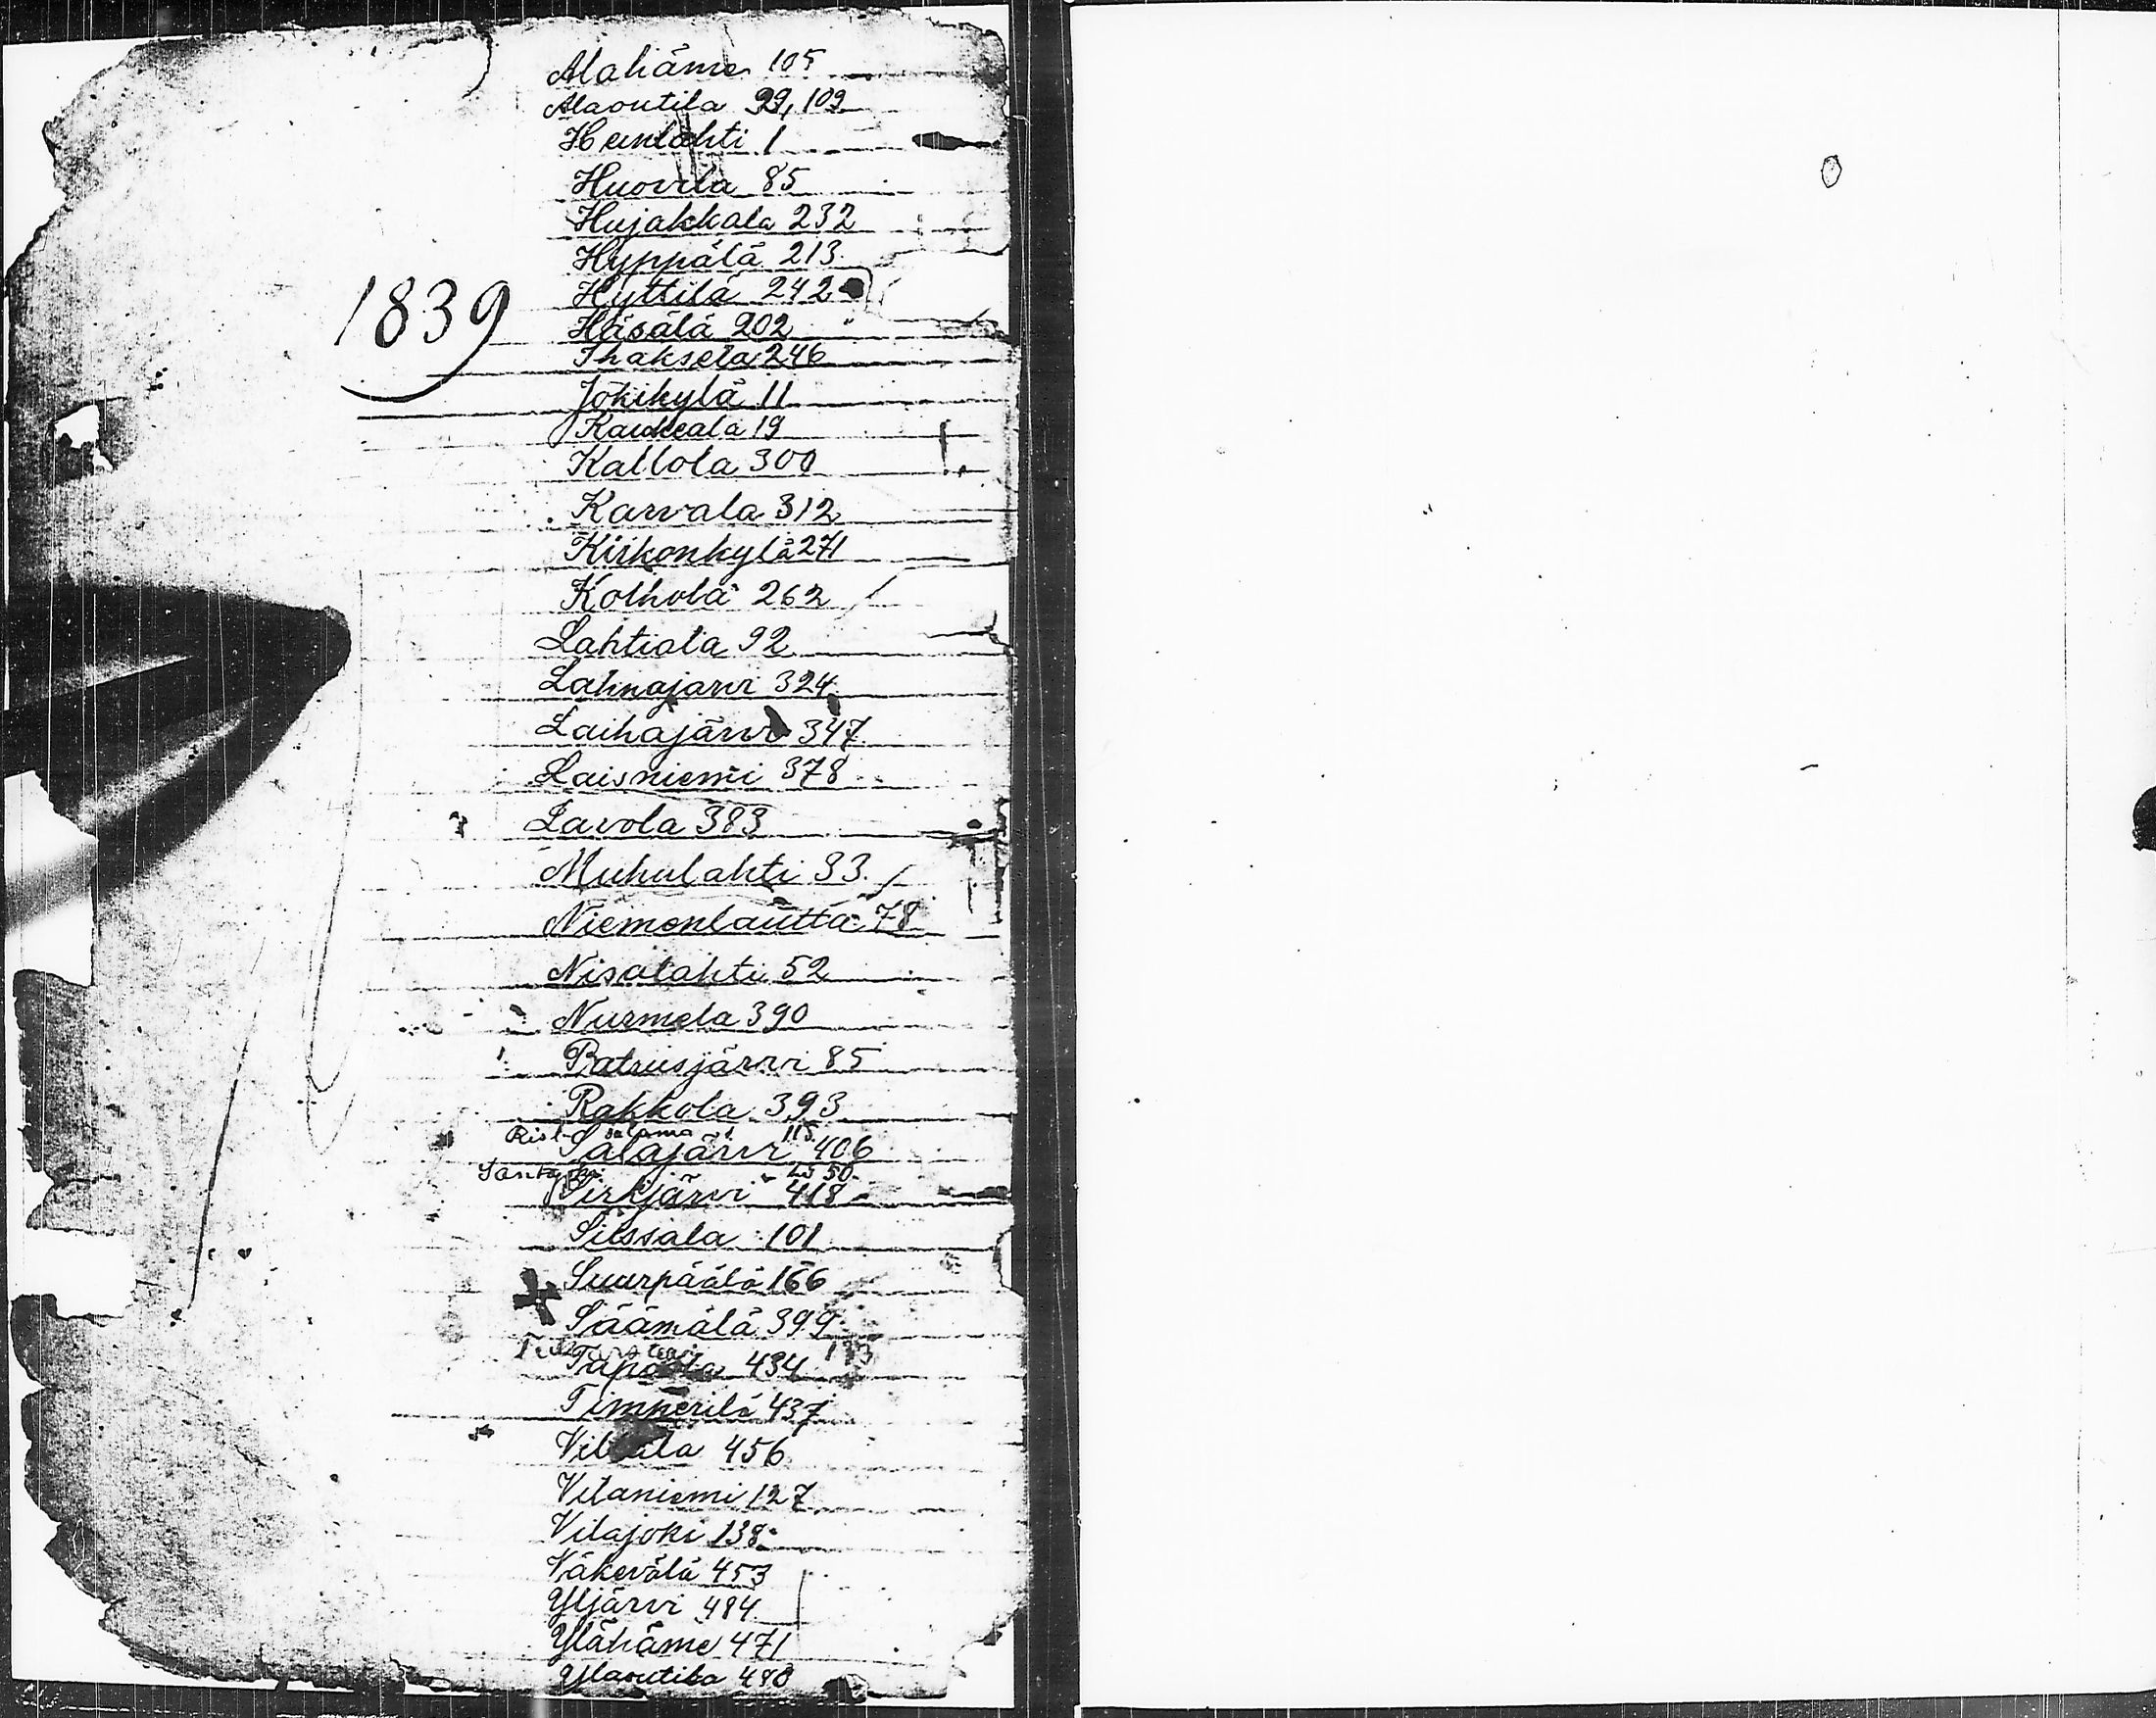 1839
Alahäme 105
Alaoutila 99, 109
Heinlahti 1
Huovila 85
Hujakkala 232
Hyppälä 213
Hyttilä 242
Häsälä 202
Ihaksela 246
Jokikylä 11
Kaukeala 19
Kallola 300
Karvala 312
Kirkonkylä 271
Kolhola 262
Lahtiala 92
Lahnajarvi 324
Laihajärvi 347
Laisniemi 378
Lavola 383
Muhulahti 33
Niemenlautta 78
Nisalahti 52
Nurmela 390
Patrusjärvi 85
Rakkola 393
Rist salama 115
Salajärvi 406
50
Sirkjärvi 418
Silssala 101
Suurpäälä 166
Säämälä 399
Tapiola 434
Timperilä 437
456
Vilaniemi 127
Vilajoki 138
Väkevälä 453
Yljärvi 484
Ylähäme 471
Ylaoutila 480